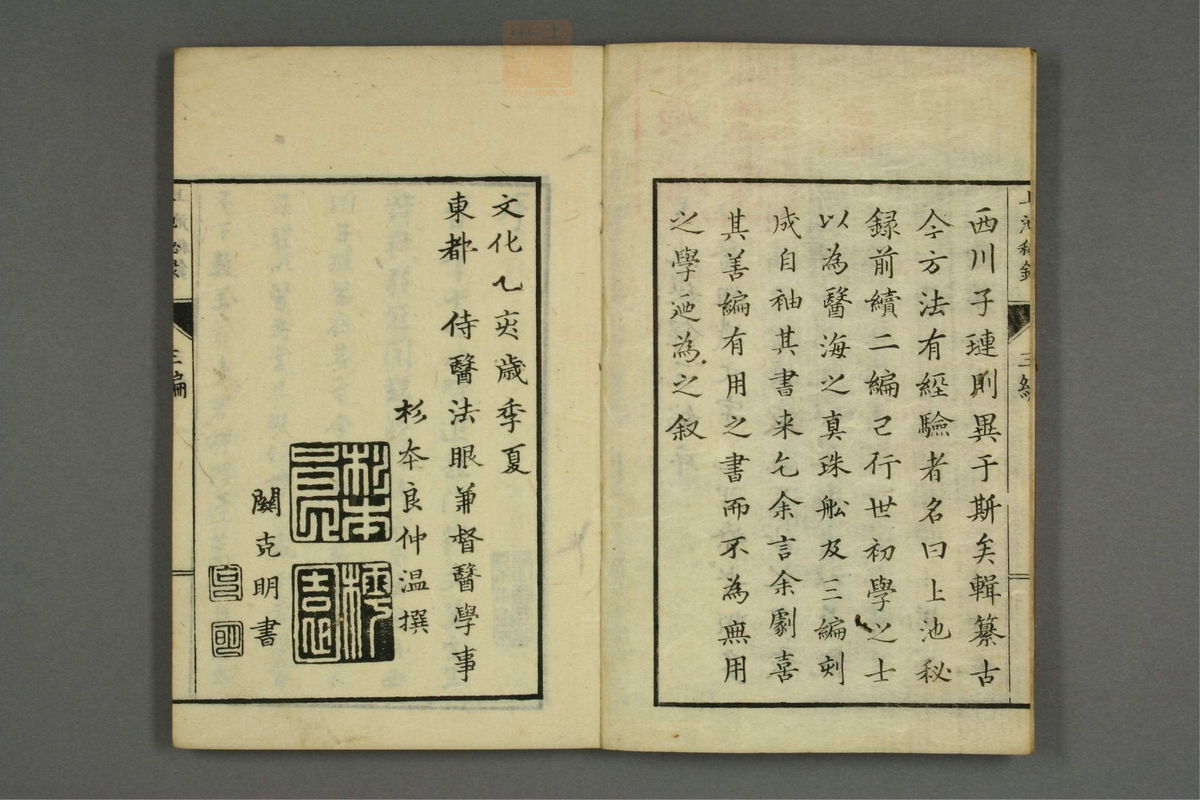 西川子璉則異于斯矣輯纂古
今方法有經驗者名曰上池秘
録前續二編已行世初學之士
以為醫海之真珠船及三編刻
成自袖其書来乞余言余劇喜
其善編有用之書而不為無用
之學廼為之叙
文化乙亥歳季夏
東都 侍醫法眼兼督醫學事
杉本良仲温撰
杉本
良
關克明書
三編